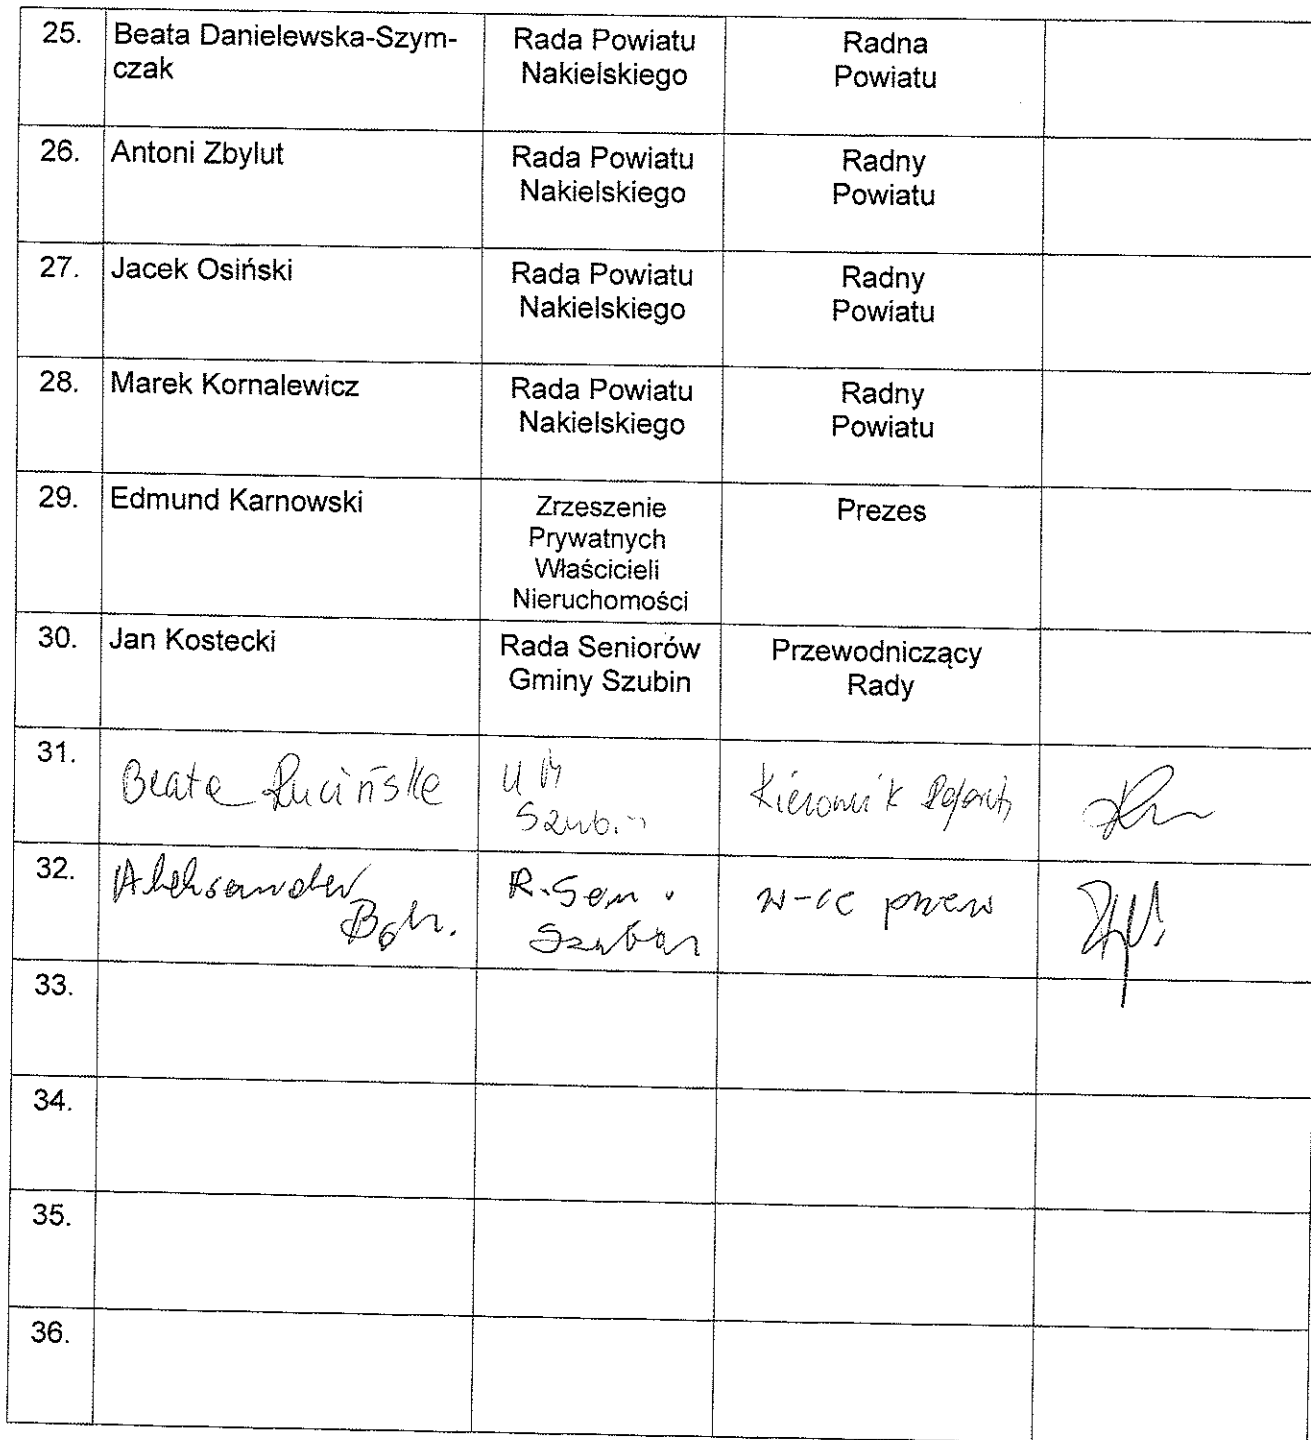 25. Beata Danielewska-Szym-
czak
Rada Powiatu
Nakielskiego
Radna
Powiatu
26. Antoni Zbylut
Rada Powiatu
Nakielskiego
Radny
Powiatu
27. Jacek Osiński
Rada Powiatu
Nakielskiego
Radny
Powiatu
28. Marek Kornalewicz
Rada Powiatu
Nakielskiego
Radny
Powiatu
29. Edmund Karnowski
Zrzeszenie
Prywatnych
Właścicieli
Nieruchomości
Prezes
30. Jan Kostecki
Rada Seniorów
Gminy Szubin
Przewodniczący
Rady
31. Beata Rucińska
UM
Szubin
Kierownik
32. Aleksander
R. Sen.
Szubin
w-ce przew
33.
34.
35.
36.